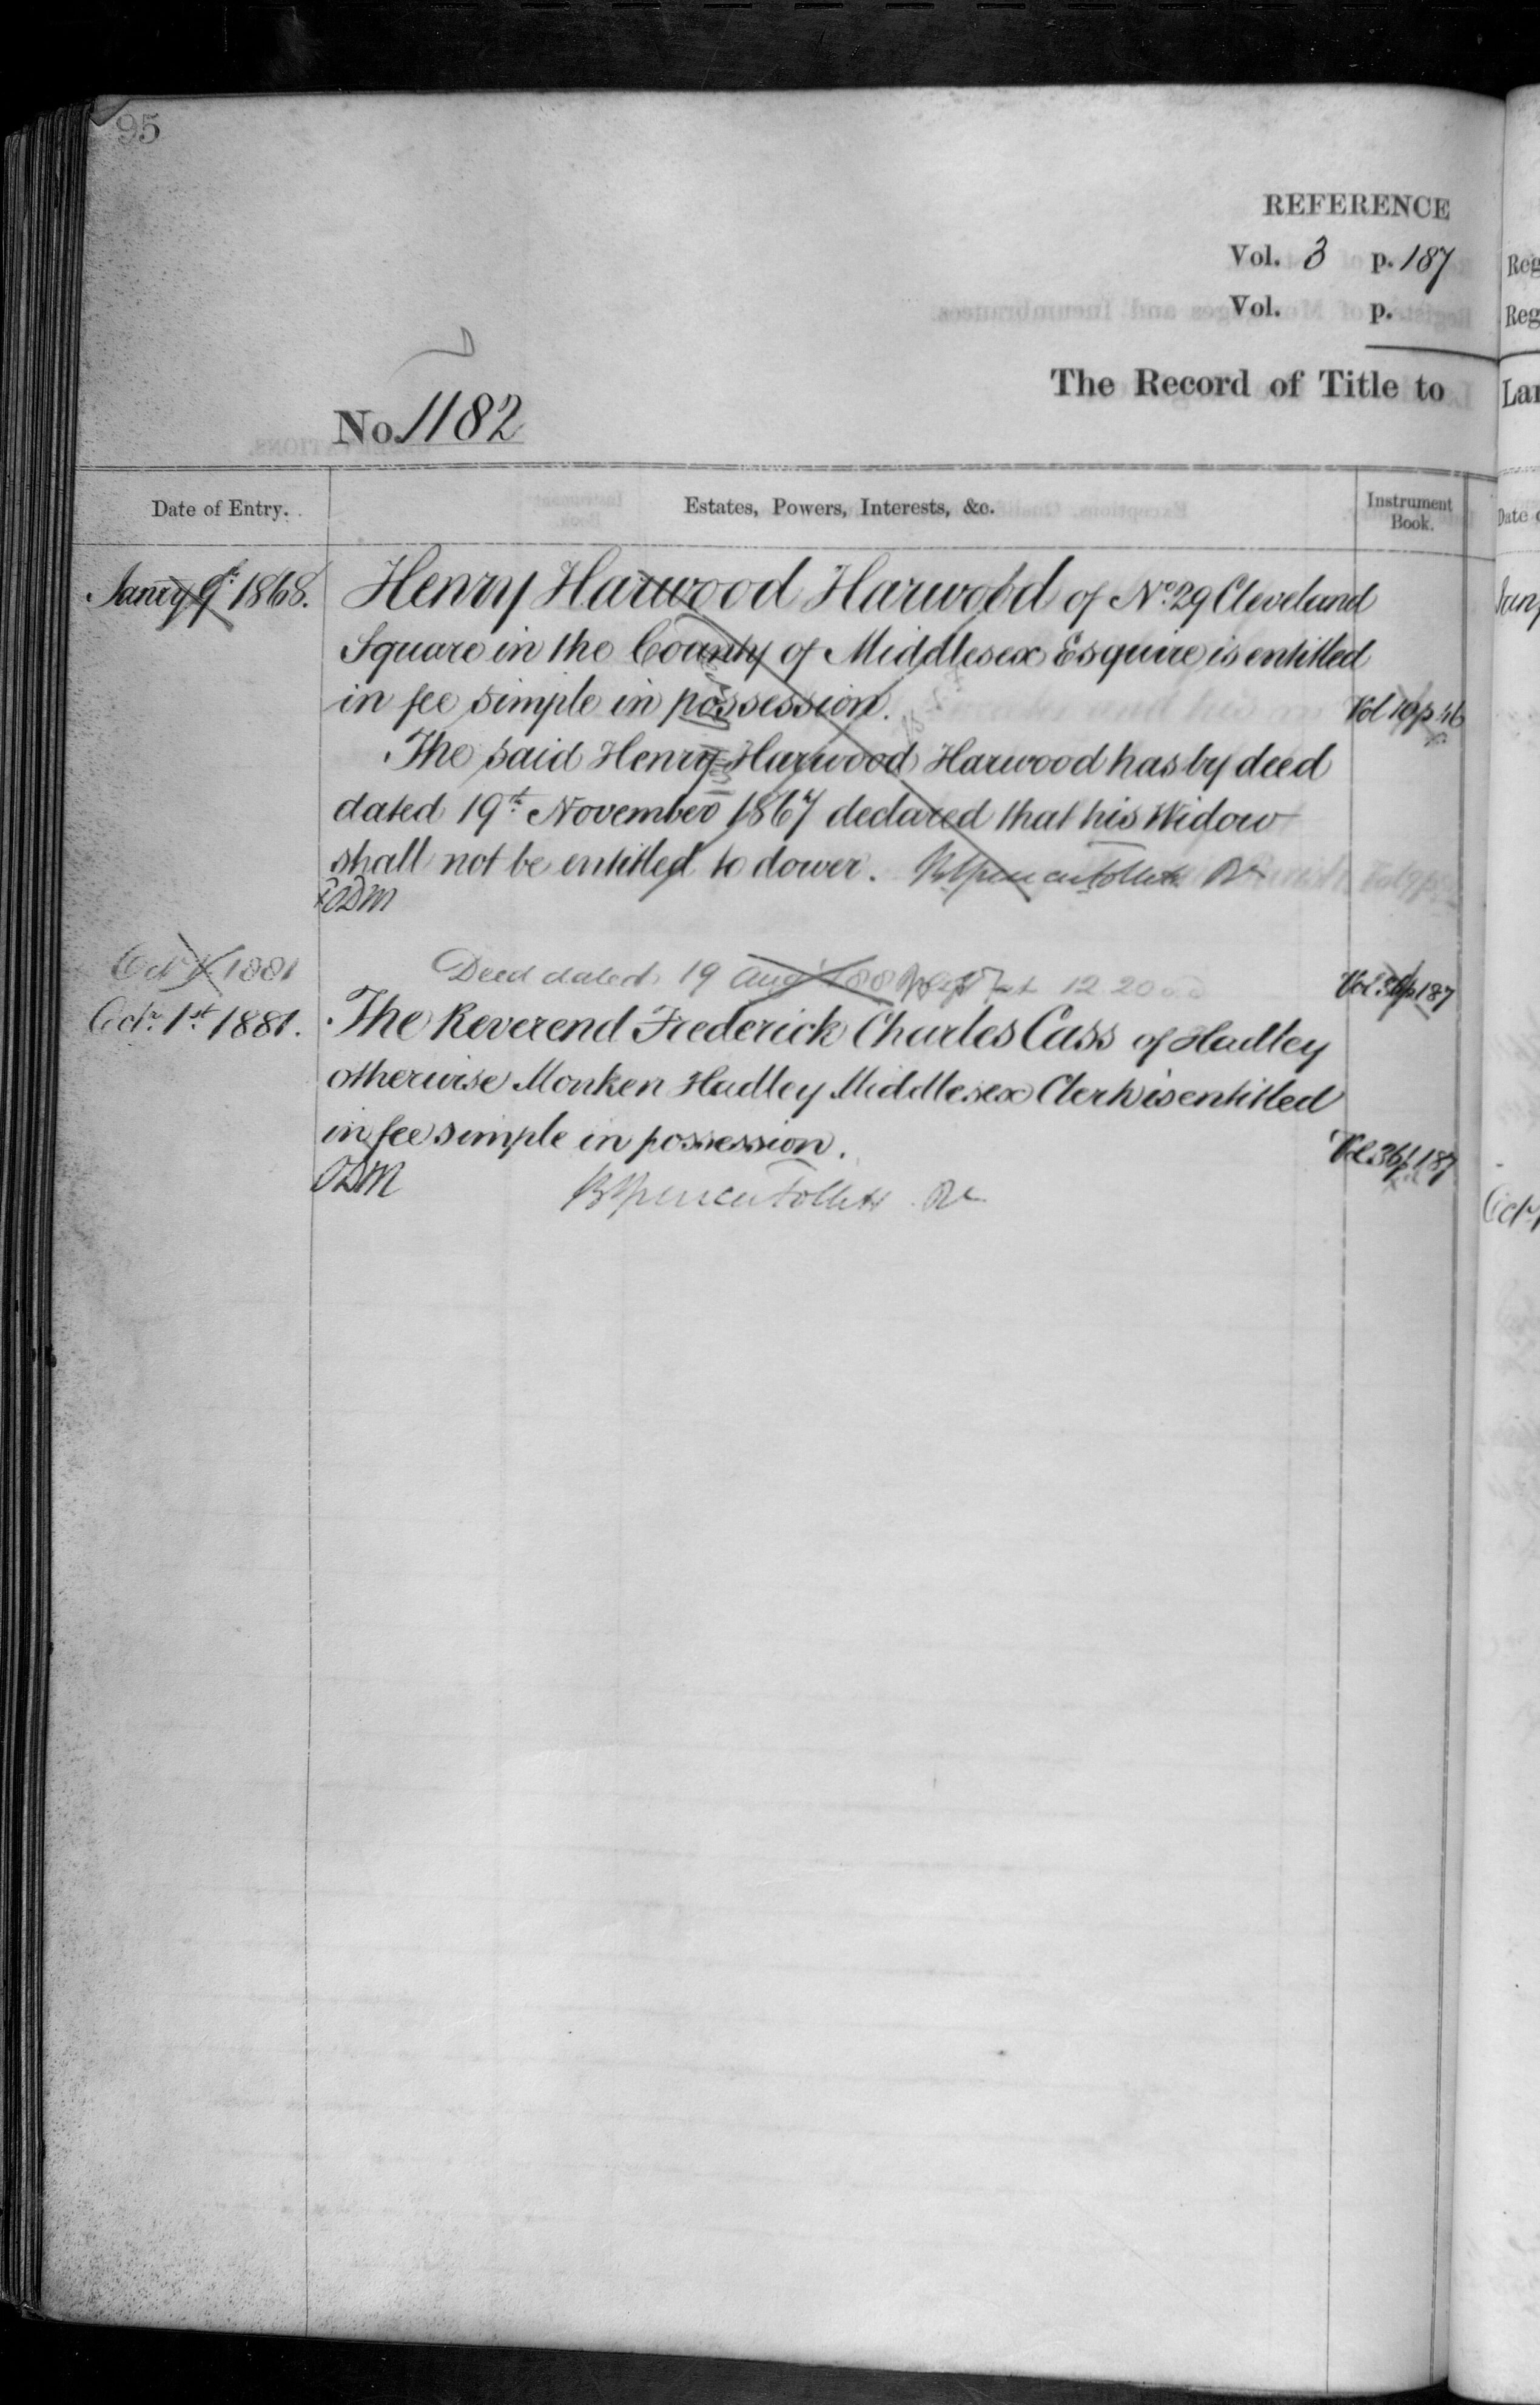 95
REFERENCE
Vol. 3 p. 187
Vol. p.
The Record of Title to
No. 1182
Date of Entry. Estates, Powers, Interests, &c. Instrument Book.
Janry 9th 1868. Henry Harwood Harwood of No. 29 Cleveland
Square in the County of Middlesex Esquire is entitled
in fee simple in possession. Vol 10 p 46
The said Henry Harwood Harwood has by deed
dated 19th November 1867 declared that his Widow
shall not be entitled to dower. Brent Spencer Follett Rr
ODM
Oct 1 1881 Deed dated 19 Aug 1881 at 12.20 Vol. 36 p 187
Octr. 1st 1881. The Reverend Frederick Charles Cass of Hadley
otherwise Monken Hadley Middlesex Clerk is entitled
in fee simple in possession. Vol. 36 p 187
ODM B Spencer Follett Rr
Reg
Reg
Lan
Date o
Jany
Octr